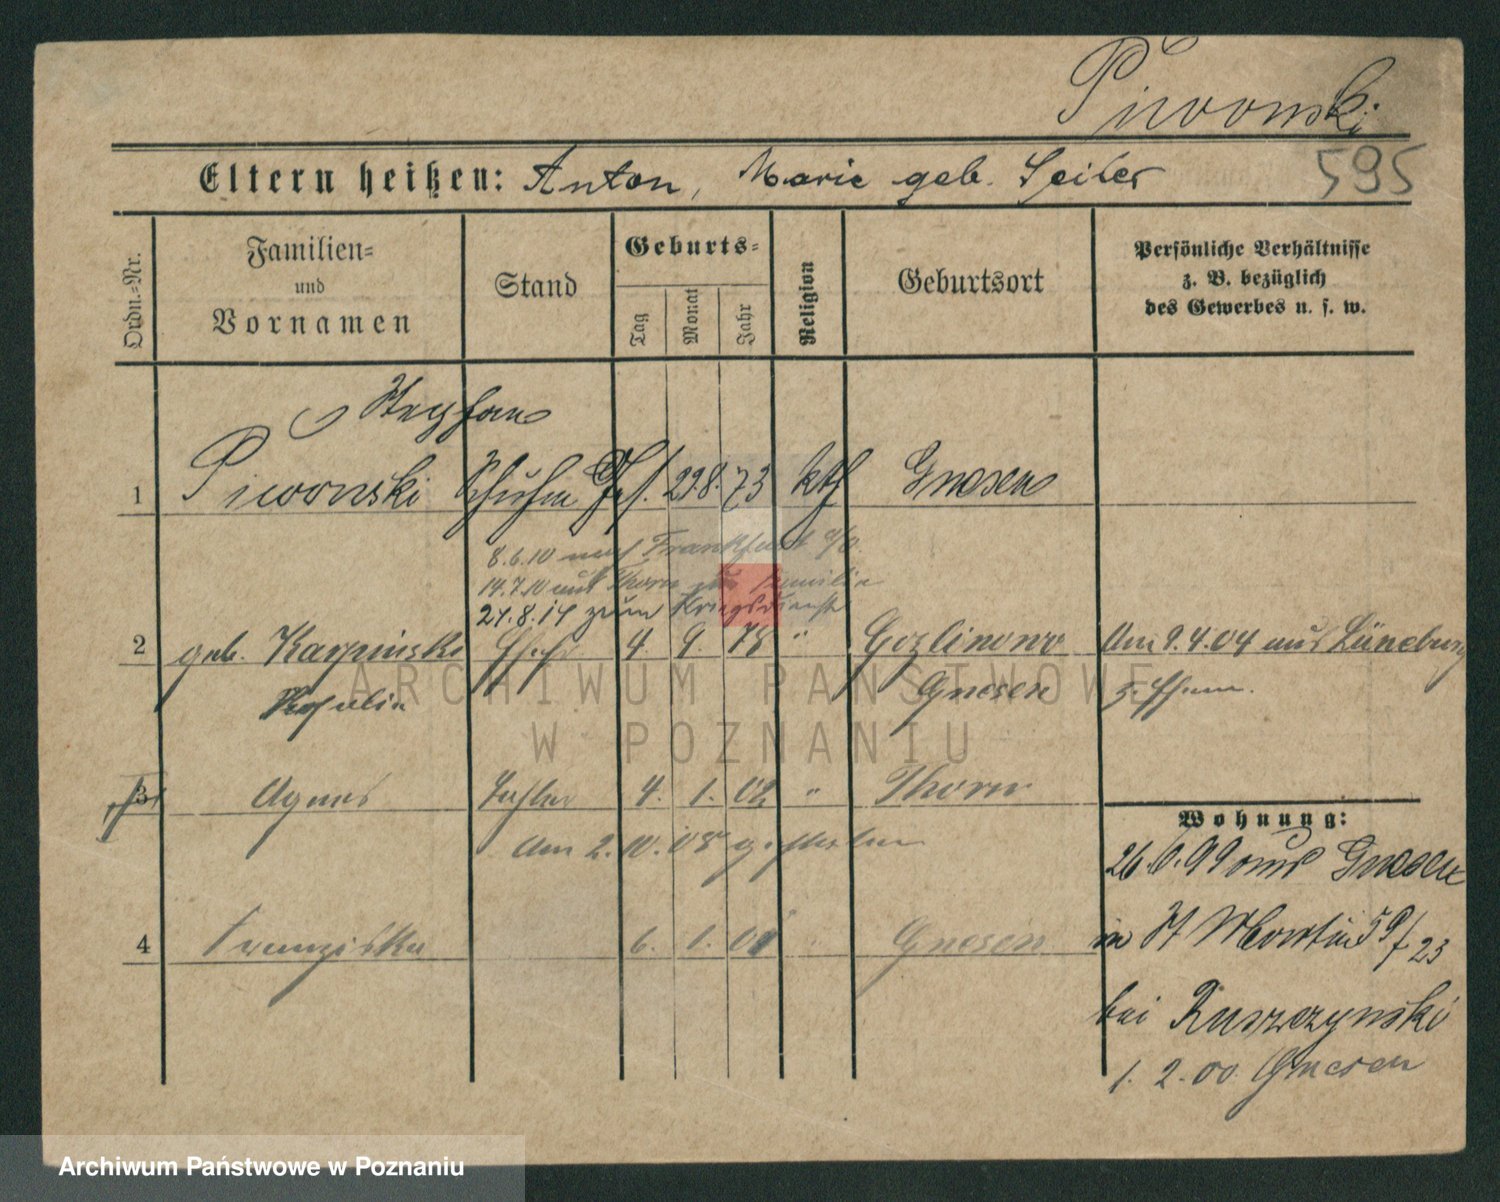 Piwonski
Eltern heißen: Anton, Marie geb. Seiler
595
Ordn.-Nr.
Familien-
und
Vornamen
Stand
Geburts-
Tag
Monat
Jahr
Religion
Geburtsort
Persönliche Verhältnisse
z. B. bezüglich
des Gewerbes u. s. w.
Stephan
1 Piwonski Schuhm Ges. 29 8. 73 kth Gnesen
8.6.10 nach Frankfurt a/O.
14.7.10 aus Thorn zur Familie
27.8.14 zum Kriegsdienste
2 geb. Karpinska Ehefr 4. 9. 78 " Am 9.4.04 aus Lüneburg
Gnesen z. Ehem.
3 Agnes Tochter 4. 1. 02 " Thorn
Am 2.10.08 gestorben
4 Franziska 6. 1. Gnesen
Wohnung:
26. .99 aus Gnesen
in St Martin 59/23
bei Ruszczynski
1. 2. 00. Gnesen
ARCHIWUM PAŃSTWOWE
W POZNANIU
Archiwum Państwowe w Poznaniu